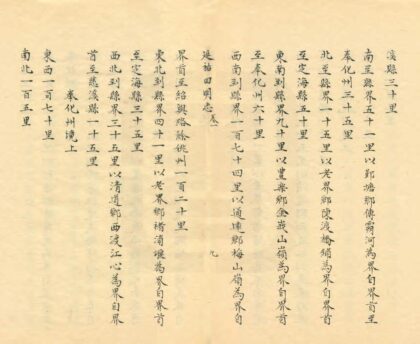 溪縣三十里
南至縣界五十一里以鄞塘鄉傅霸河為界自界首至
奉化州三十五里
北至縣界一十五里以老界鄉陳渡橋為界自界首
至定海縣五十里
東南到縣界九十里以豊樂鄉金峩山嶺為界自界首
至奉化州六十里
西南到縣界一百七十四里以通遠鄉梅山嶺為界自
延祐四明志 卷一
九
界首至紹興路餘姚州一百二十里
東北到縣界四十一里以老界鄉褚浦堰為界自界首
至定海縣三十五里
西北到縣界三十五里以清道鄉西渡江心為界自界
首至慈溪縣一十五里
奉化州境土
東西一百七十里
南北一百五里